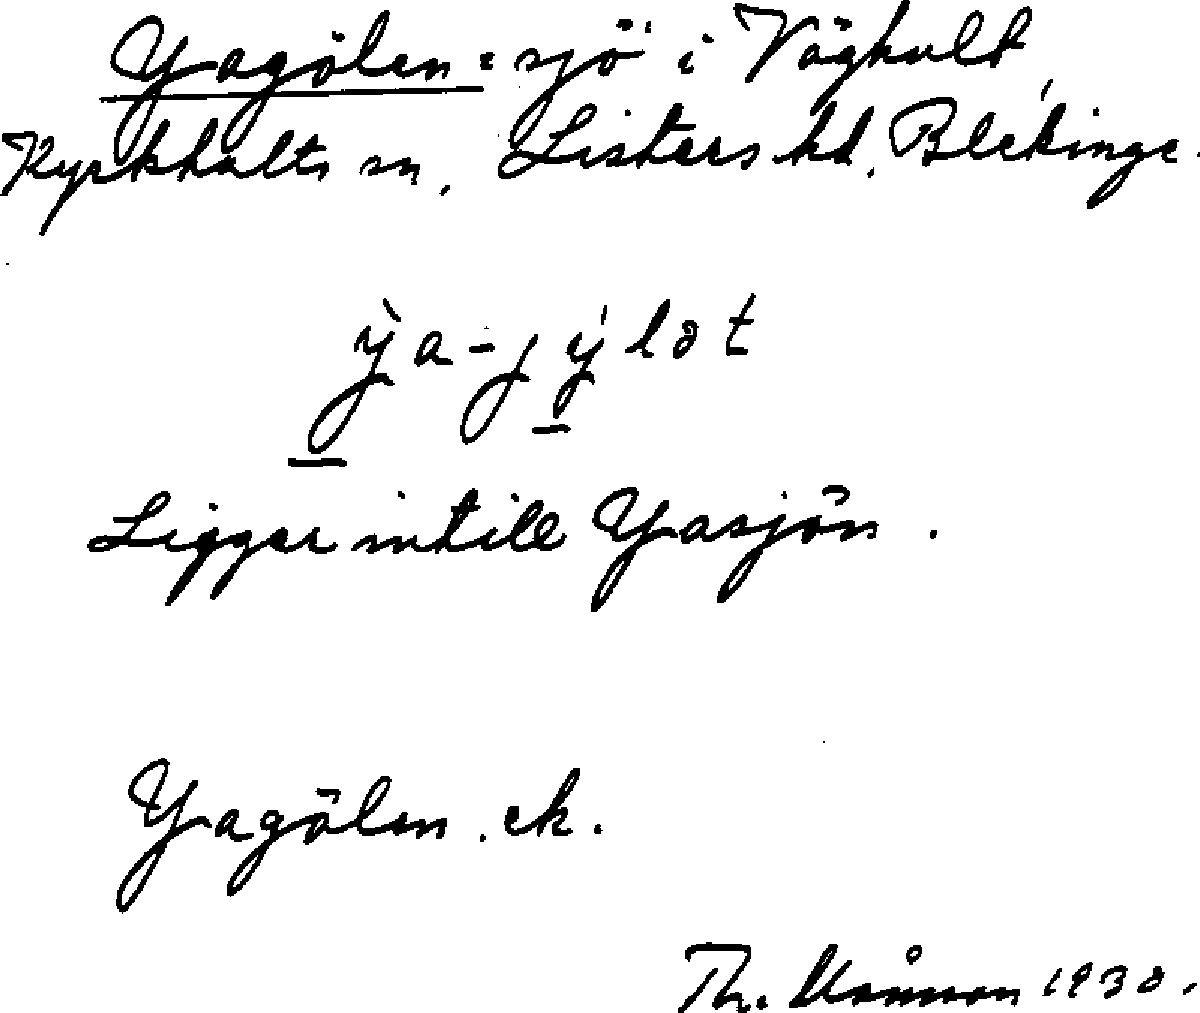 Yagölen = sjö i Vöghult,
Kyrkhults sn, Listers hd, Blekinge.
ỳ̱a-jý̱lət
Ligger intill Yasjön.
Yagölen. ek.
Th. 1930.